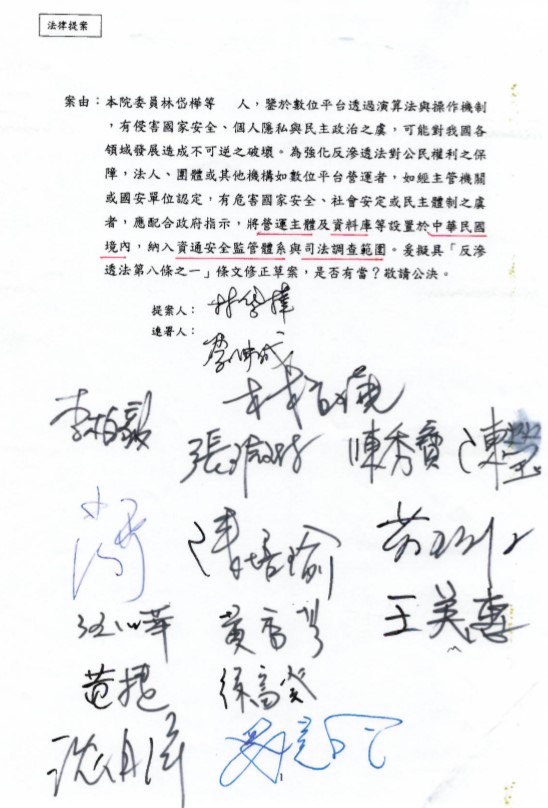 法律提案
案由：本院委員林岱樺等　人，鑒於數位平台透過演算法與操作機制
，有侵害國家安全、個人隱私與民主政治之虞，可能對我國各
領域發展造成不可逆之破壞。為強化反滲透法對公民權利之保
障，法人、團體或其他機構如數位平台營運者，如經主管機關
或國安單位認定，有危害國家安全、社會安定或民主體制之虞
者，應配合政府指示，將營運主體及資料庫等設置於中華民國
境內，納入資通安全監管體系與司法調查範圍。爰擬具「反滲
透法第八條之一」條文修正草案，是否有當？敬請公決。
提案人：林岱樺
連署人：
李坤城
李柏毅
張雅琳 陳秀寳
陳培瑜
王美惠
黃捷 徐富癸
沈伯洋